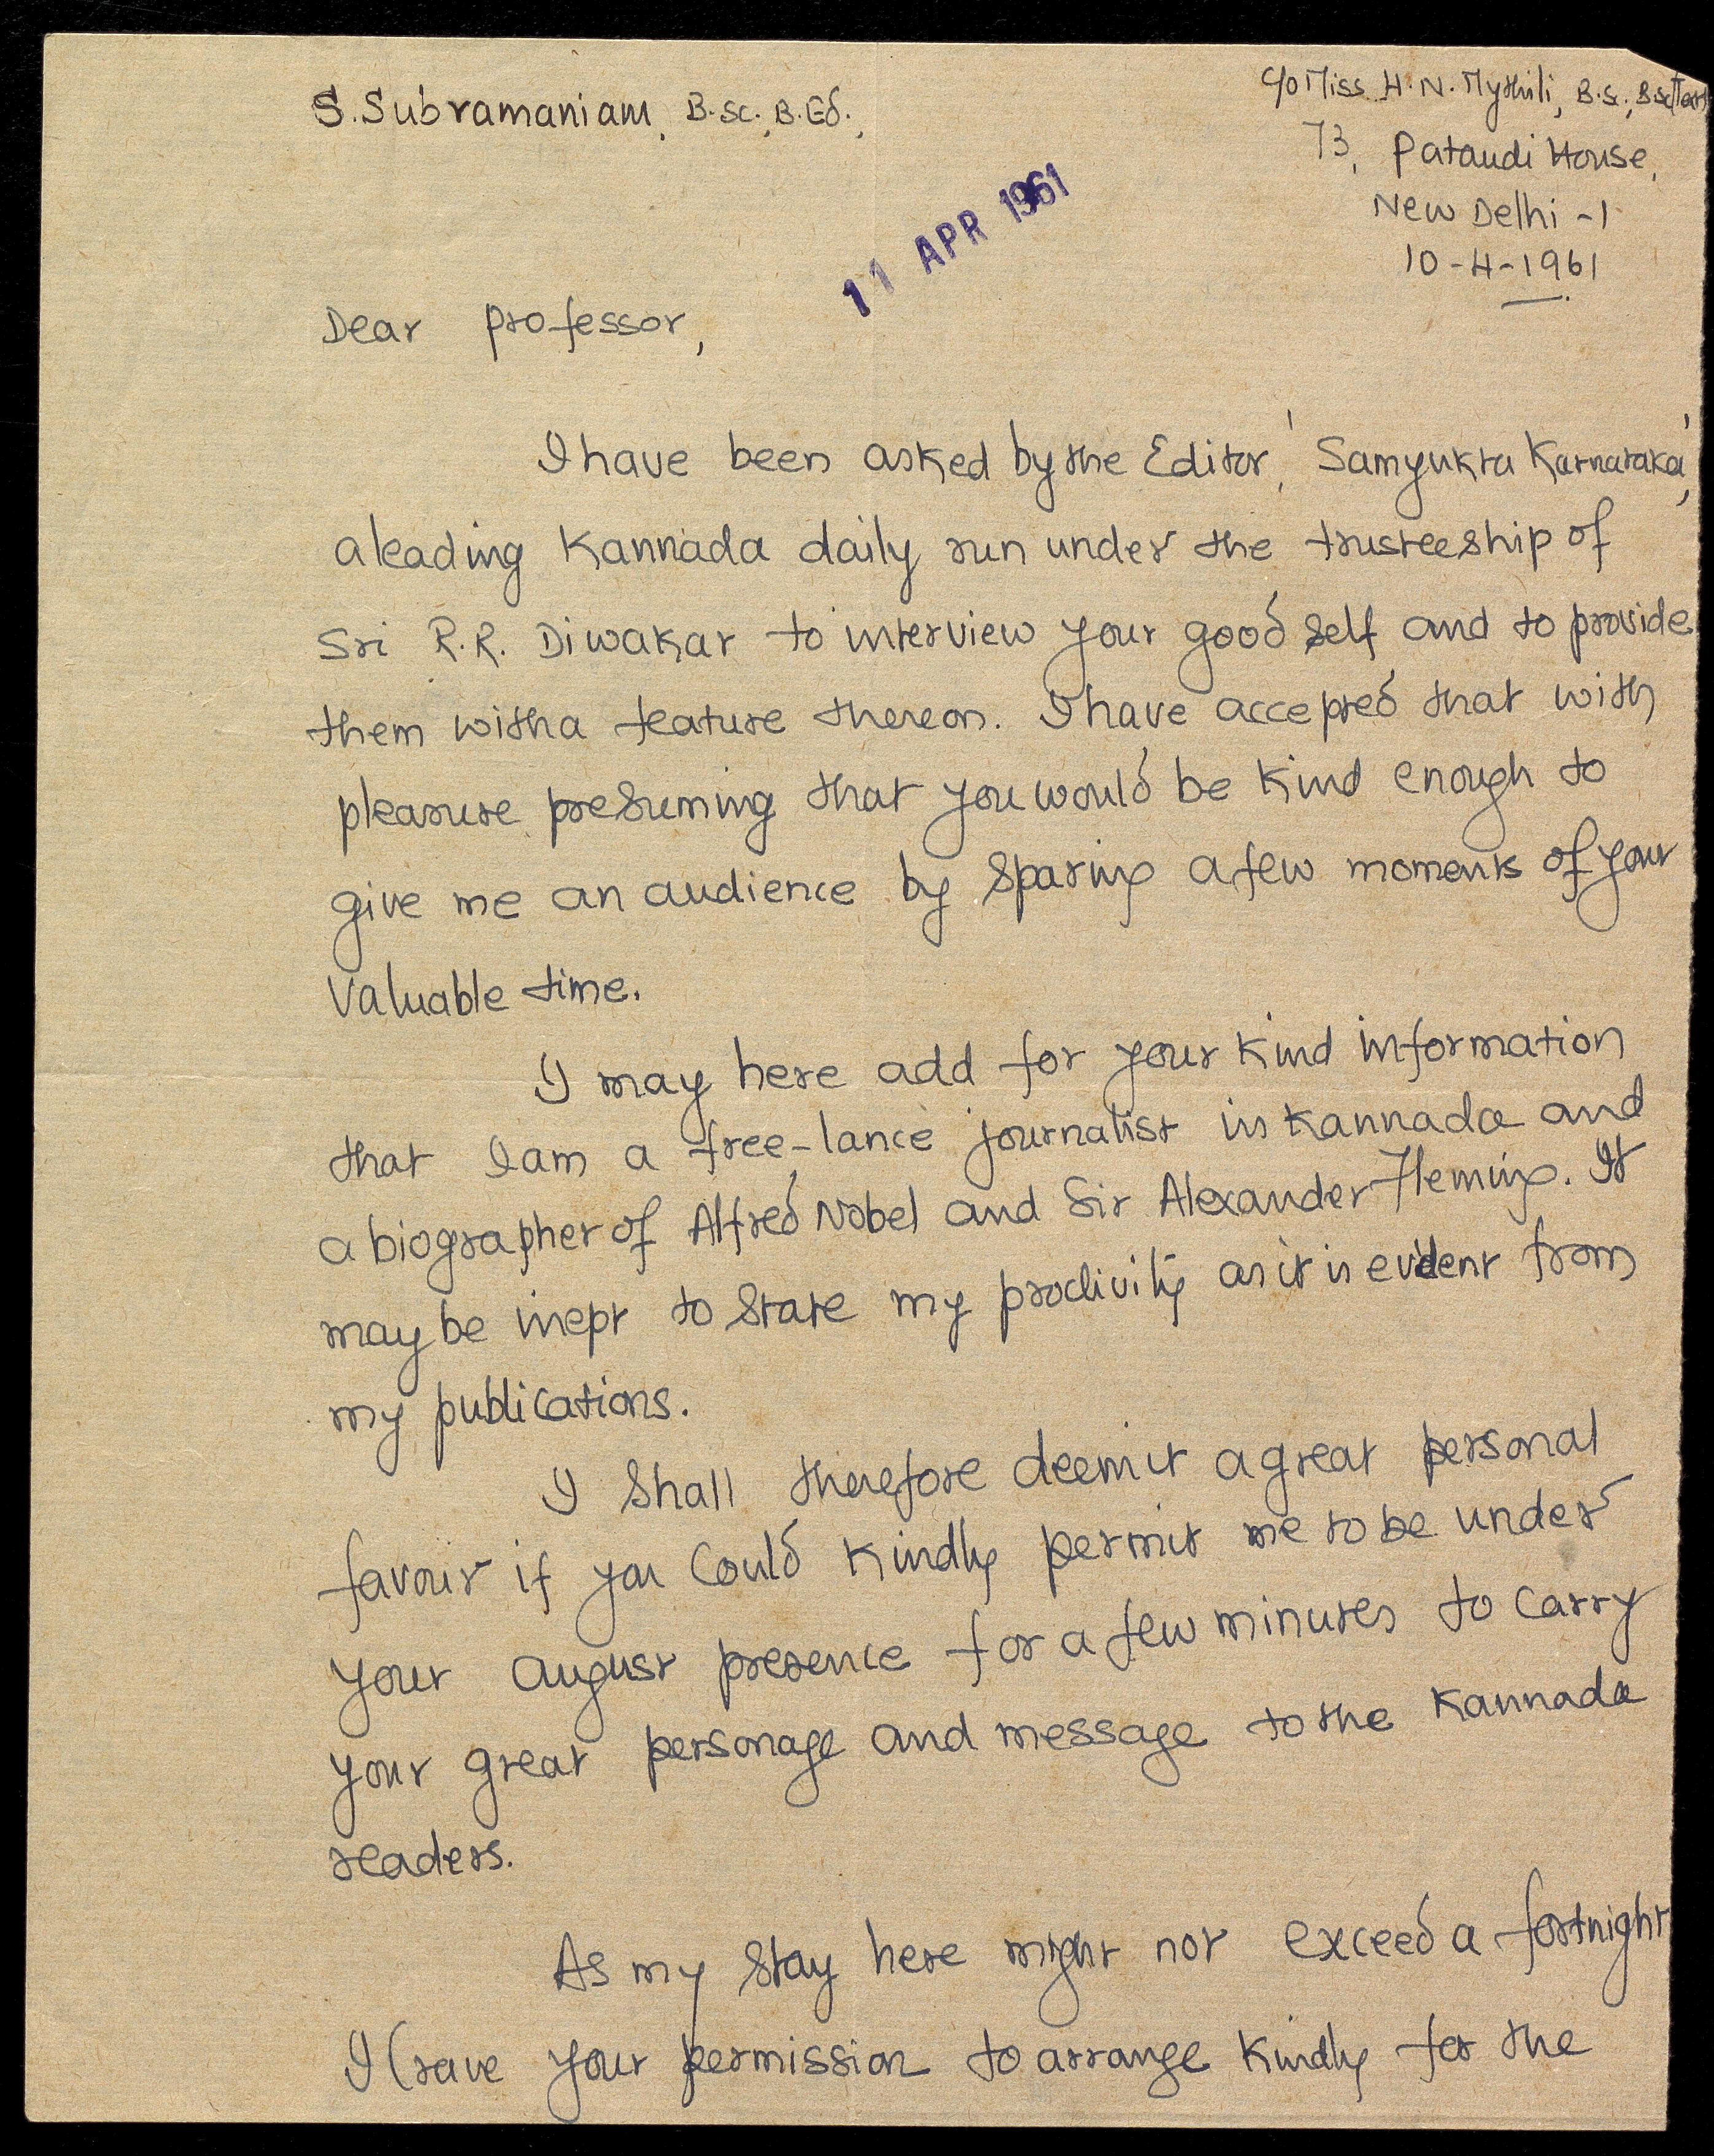 S. Subramaniam, B.Sc., B.Ed.,
c/o Miss H. N. Mythili, B.Sc., B.Sc
73, Pataudi House,
New Delhi -1
10-4-1961
11 APR 1961
Dear professor,
I have been asked by the Editor, 'Samyukta Karnataka',
a leading Kannada daily run under the trusteeship of
Sri R.R. Diwakar to interview your good self and to provide
them with a feature thereon. I have accepted that with
pleasure presuming that you would be kind enough to
give me an audience by sparing a few moments of your
valuable time.
I may here add for your kind information
that I am a free-lance journalist in Kannada and
a biographer of Alfred Nobel and Sir Alexander Fleming. It
may be inept to state my proclivity as it is evident from
my publications.
I shall therefore deem it a great personal
favour if you could kindly permit me to be under
your august presence for a few minutes to carry
your great personage and message to the Kannada
readers.
As my stay here might not exceed a fortnight
I crave your permission to arrange kindly for the